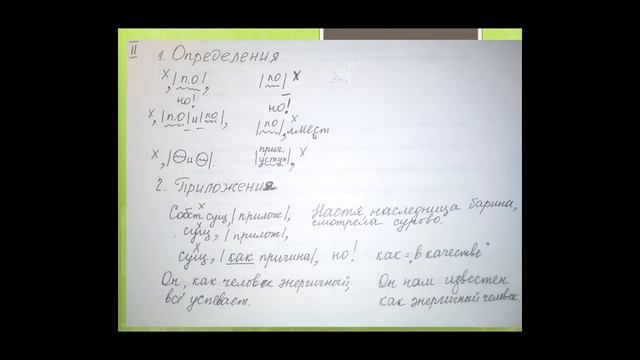 II
1. Определения
х, |п.о|, |п.о| х
но! но!
х, |п.о| и |п.о|, |п.о|, л.мест
х, |~ и ~|. |прич. уступ|, х
2. Приложения
Собст. сущ, |прилож|, Настя наследница барина,
смотрела сурово.
сущ, |прилож|,
сущ, |как причина|, но! как = „в качестве"
Он, как человек энергичный, Он нам известен
всё успевает. как энергичный человек.